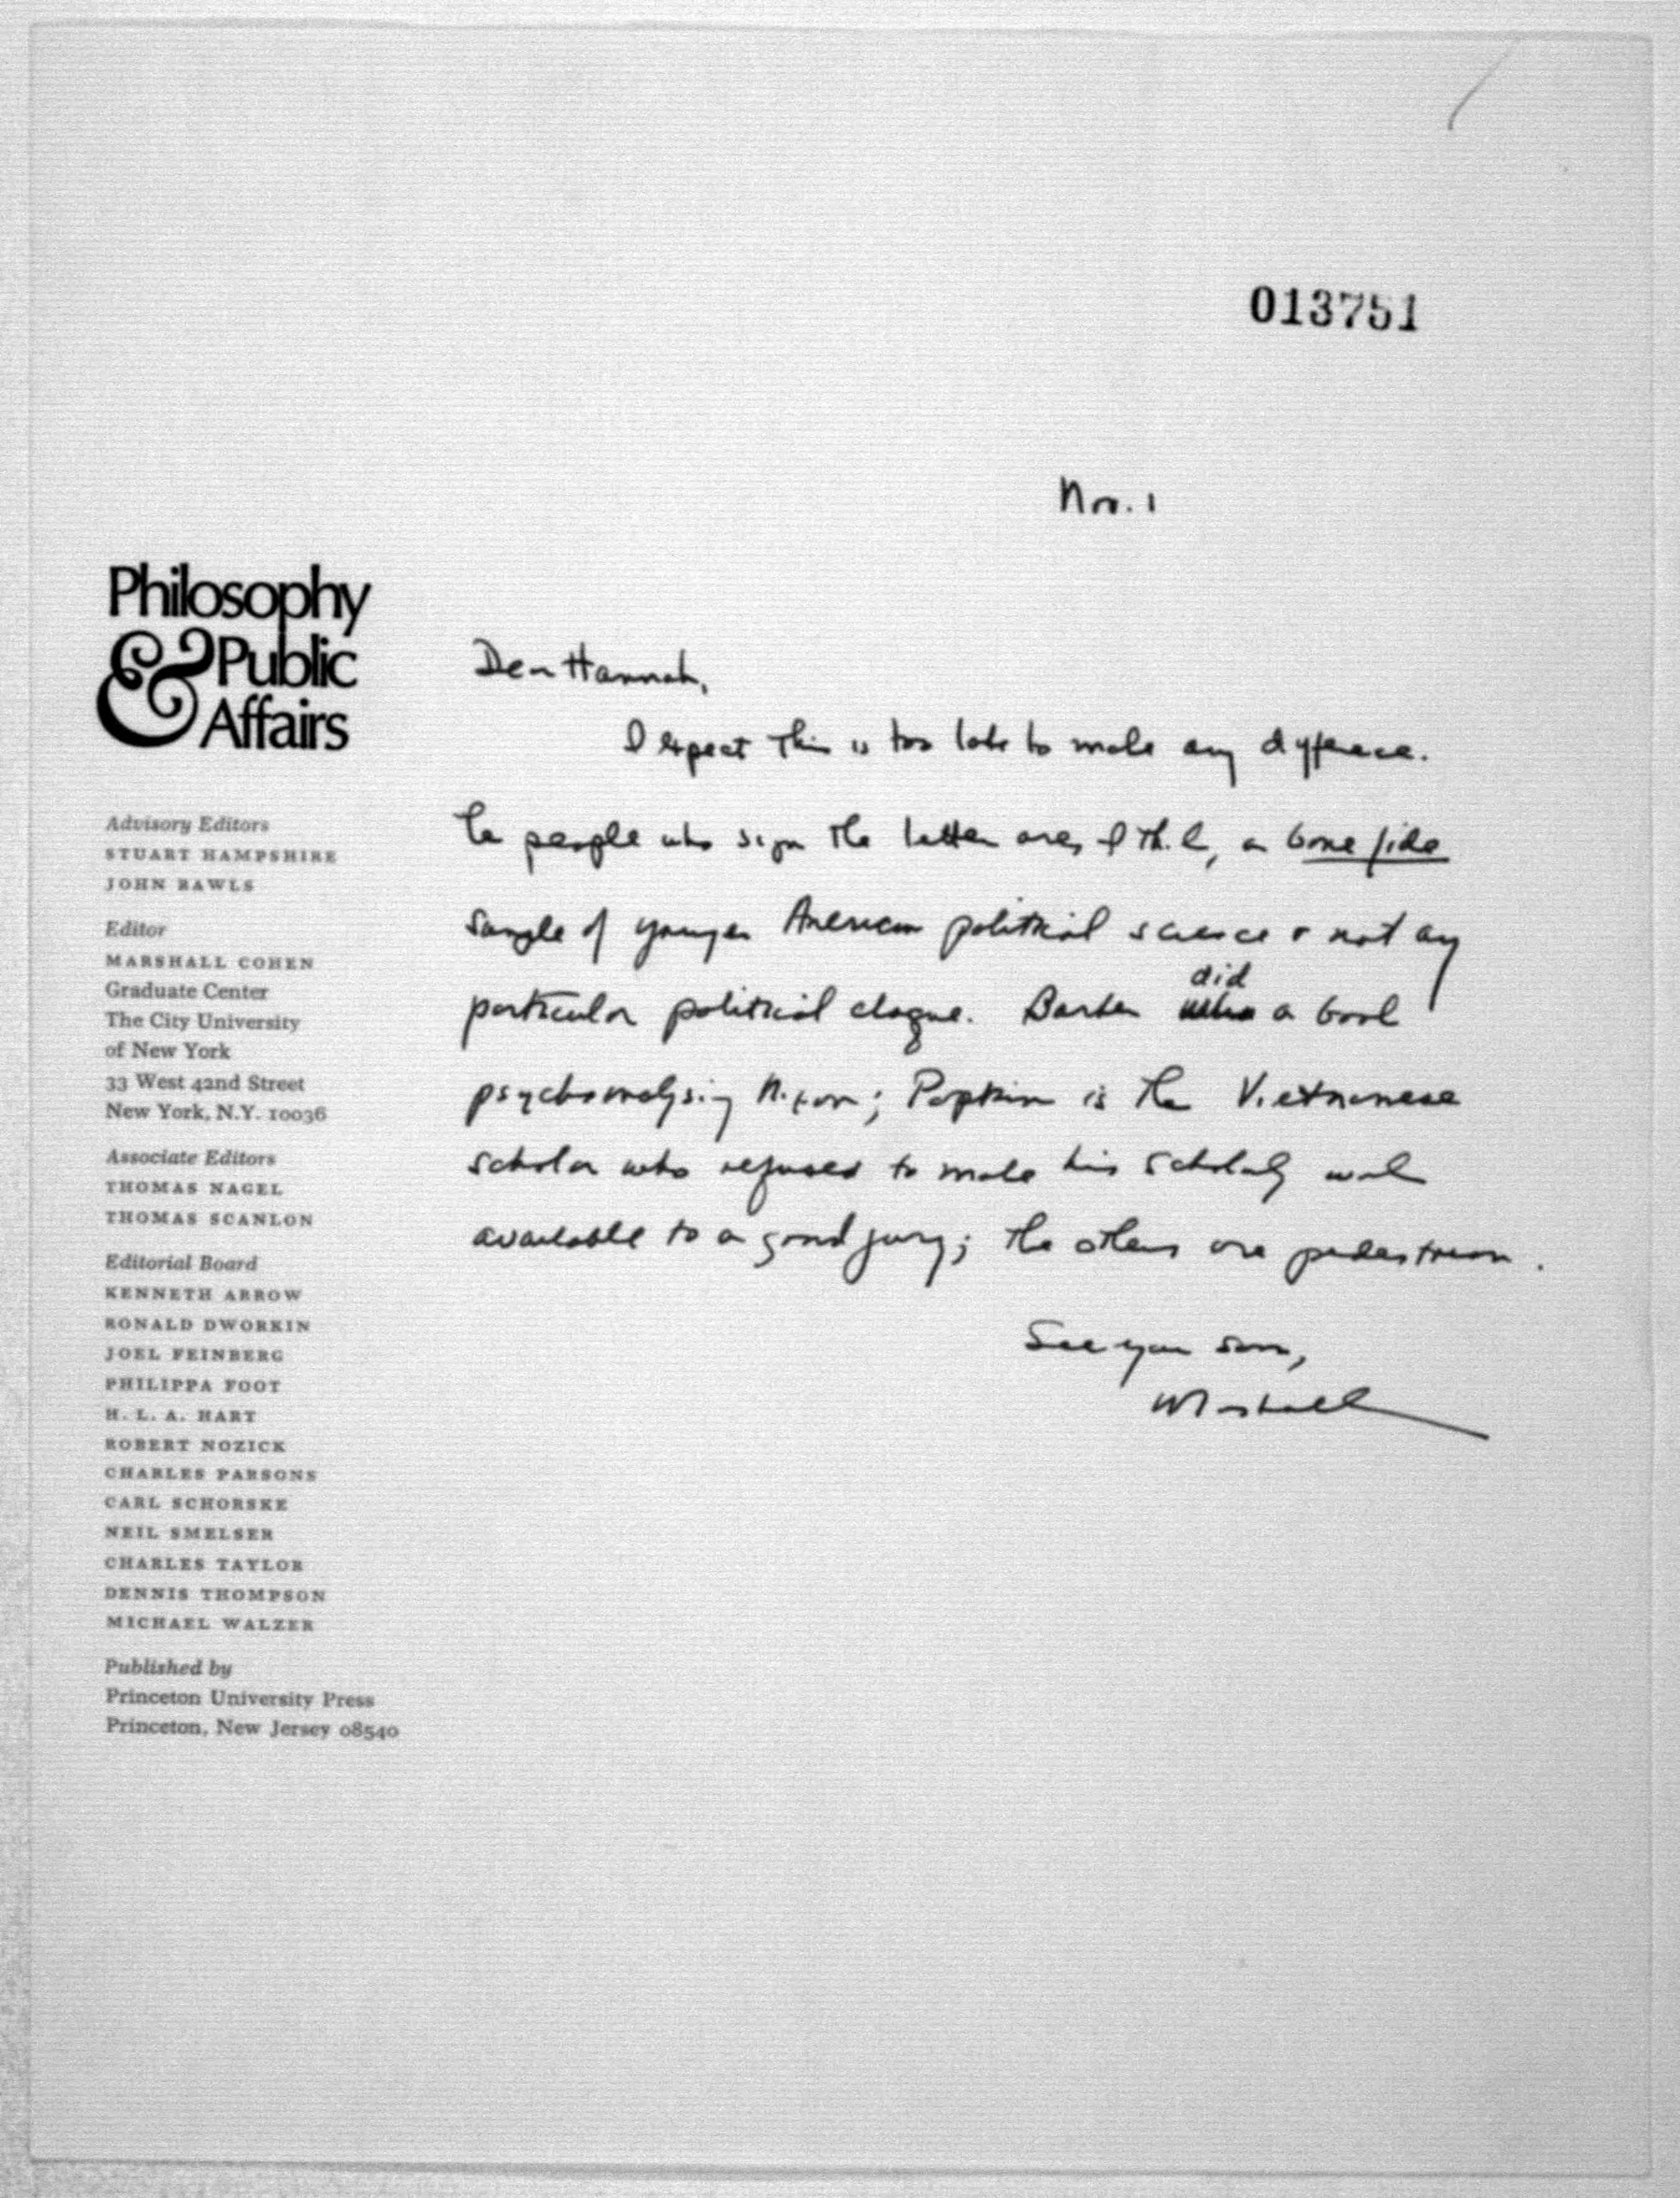 013751
Nov. 1
Philosophy
& Public
Affairs
Advisory Editors
STUART HAMPSHIRE
JOHN RAWLS
Editor
MARSHALL COHEN
Graduate Center
The City University
of New York
33 West 42nd Street
New York, N.Y. 10036
Associate Editors
THOMAS NAGEL
THOMAS SCANLON
Editorial Board
KENNETH ARROW
RONALD DWORKIN
JOEL FEINBERG
PHILIPPA FOOT
H. L. A. HART
ROBERT NOZICK
CHARLES PARSONS
CARL SCHORSKE
NEIL SMELSER
CHARLES TAYLOR
DENNIS THOMPSON
MICHAEL WALZER
Published by
Princeton University Press
Princeton, New Jersey 08540
Dear Hannah,
I expect this is too late to make any difference.
The people who sign the letter are, I think, a bona fide
sample of younger American political science & not any
particular political clague. Barber did a book
psychoanalysing Nixon; Popkin is the Vietnamese
scholar who refused to make his scholarly work
available to a grand jury; the others are pedestrian.
See you soon,
Marshall